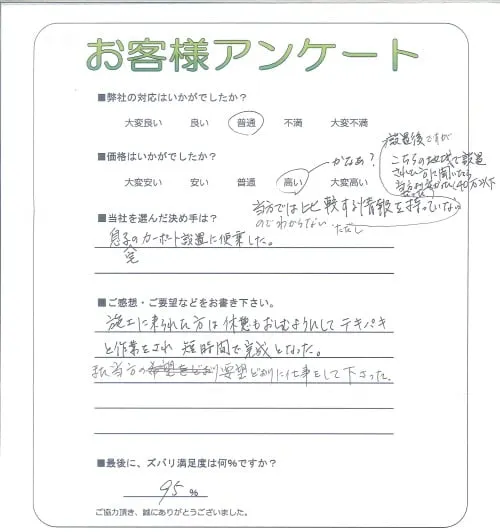 お客様アンケート
■弊社の対応はいかがでしたか?
大変良い 良い 普通 不満 大変不満
設置後ですが
■価格はいかがでしたか?
かなあ?
こちらの地域で設置
された方に聞いたら
40万以下
大変安い 安い 普通 高い 大変高い
当方では比較する情報を持っていない
のでわからない ただし
■当社を選んだ決め手は?
息子のカーポート設置に便乗した。
宅
■ご感想・ご要望などをお書き下さい。
施工に来られた方は休憩もおしむようにして テキパキ
と作業をされ 短時間で完成となった。
又当方の希望をどおり要望どおりに仕事をして下さった。
■最後に、ズバリ満足度は何%ですか?
95 %
ご協力頂き、誠にありがとうございました。